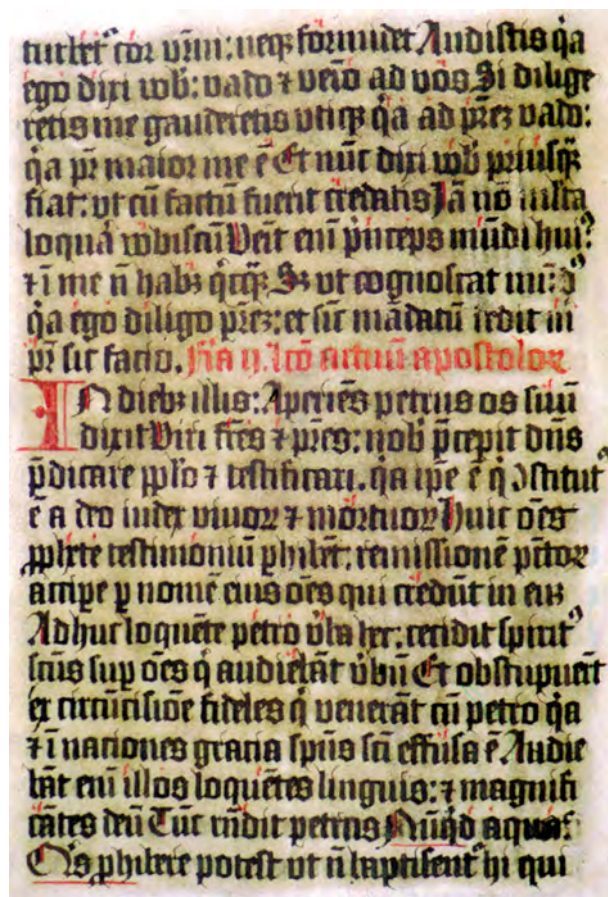 turbet᷑ cor vr̄m: neqꝫ formidet Audistis q̇a
ego dixi vob̄: vado ⁊ venio ad vos Si dilige
retis me gauderetis vtiqꝫ q̇a ad pr̄eꝫ vado:
q̇a pr̄ maior me ē Et nūc dixi vob̄ priusq̄ꝫ
fiat: ut cū factū fuerit credatis Jā nō multa
loquā vobiscū Ven̄it enī p̄nceps mūdi huiꝰ
⁊ ī me n̄ habꝫ q̇cq̄ꝫ Sꝫ ut cognoscat mūdꝰ
q̇a ego diligo pr̄eꝫ: et sic mādatū dedit m̄
pr̄ sic facio. ff̄ia ij. lcō actuū apostoloꝝ
IN diebꝫ illis: Aperiēs petrus os suū
dixit Viri fr̄es ⁊ pr̄es: nob̄ p̄cepit dn̄s
p̄dicare ppl̄o ⁊ testificari. q̇a ip̄e ē q̇ ꝯstitutꝰ
ē a deo iudex viuoꝝ ⁊ mortuoꝝ Huic om̄s
ꝓphete testimoniū ꝑhibēt: remissionē pc̄toꝝ
accipe ꝑ nomē eius om̄s qui credūt in eū
Adhuc loquēte petro v̄ba hec: cecidit spiritꝰ
sc̄us suꝑ om̄s q̇ audiebāt v̄bū Et obstupuer̄t
ex circūcisiōe fideles q̇ venerāt cū petro q̇a
⁊ ī nationes gracia sp̄us sc̄i effusa ē Audie
bāt enī illos loquētes linguis: ⁊ magnifi
cātes deū Tūc rn̄dit petrus Nūq̇d aquā
q̇s ꝓhibere potest ut n̄ baptisent᷑ hi qui